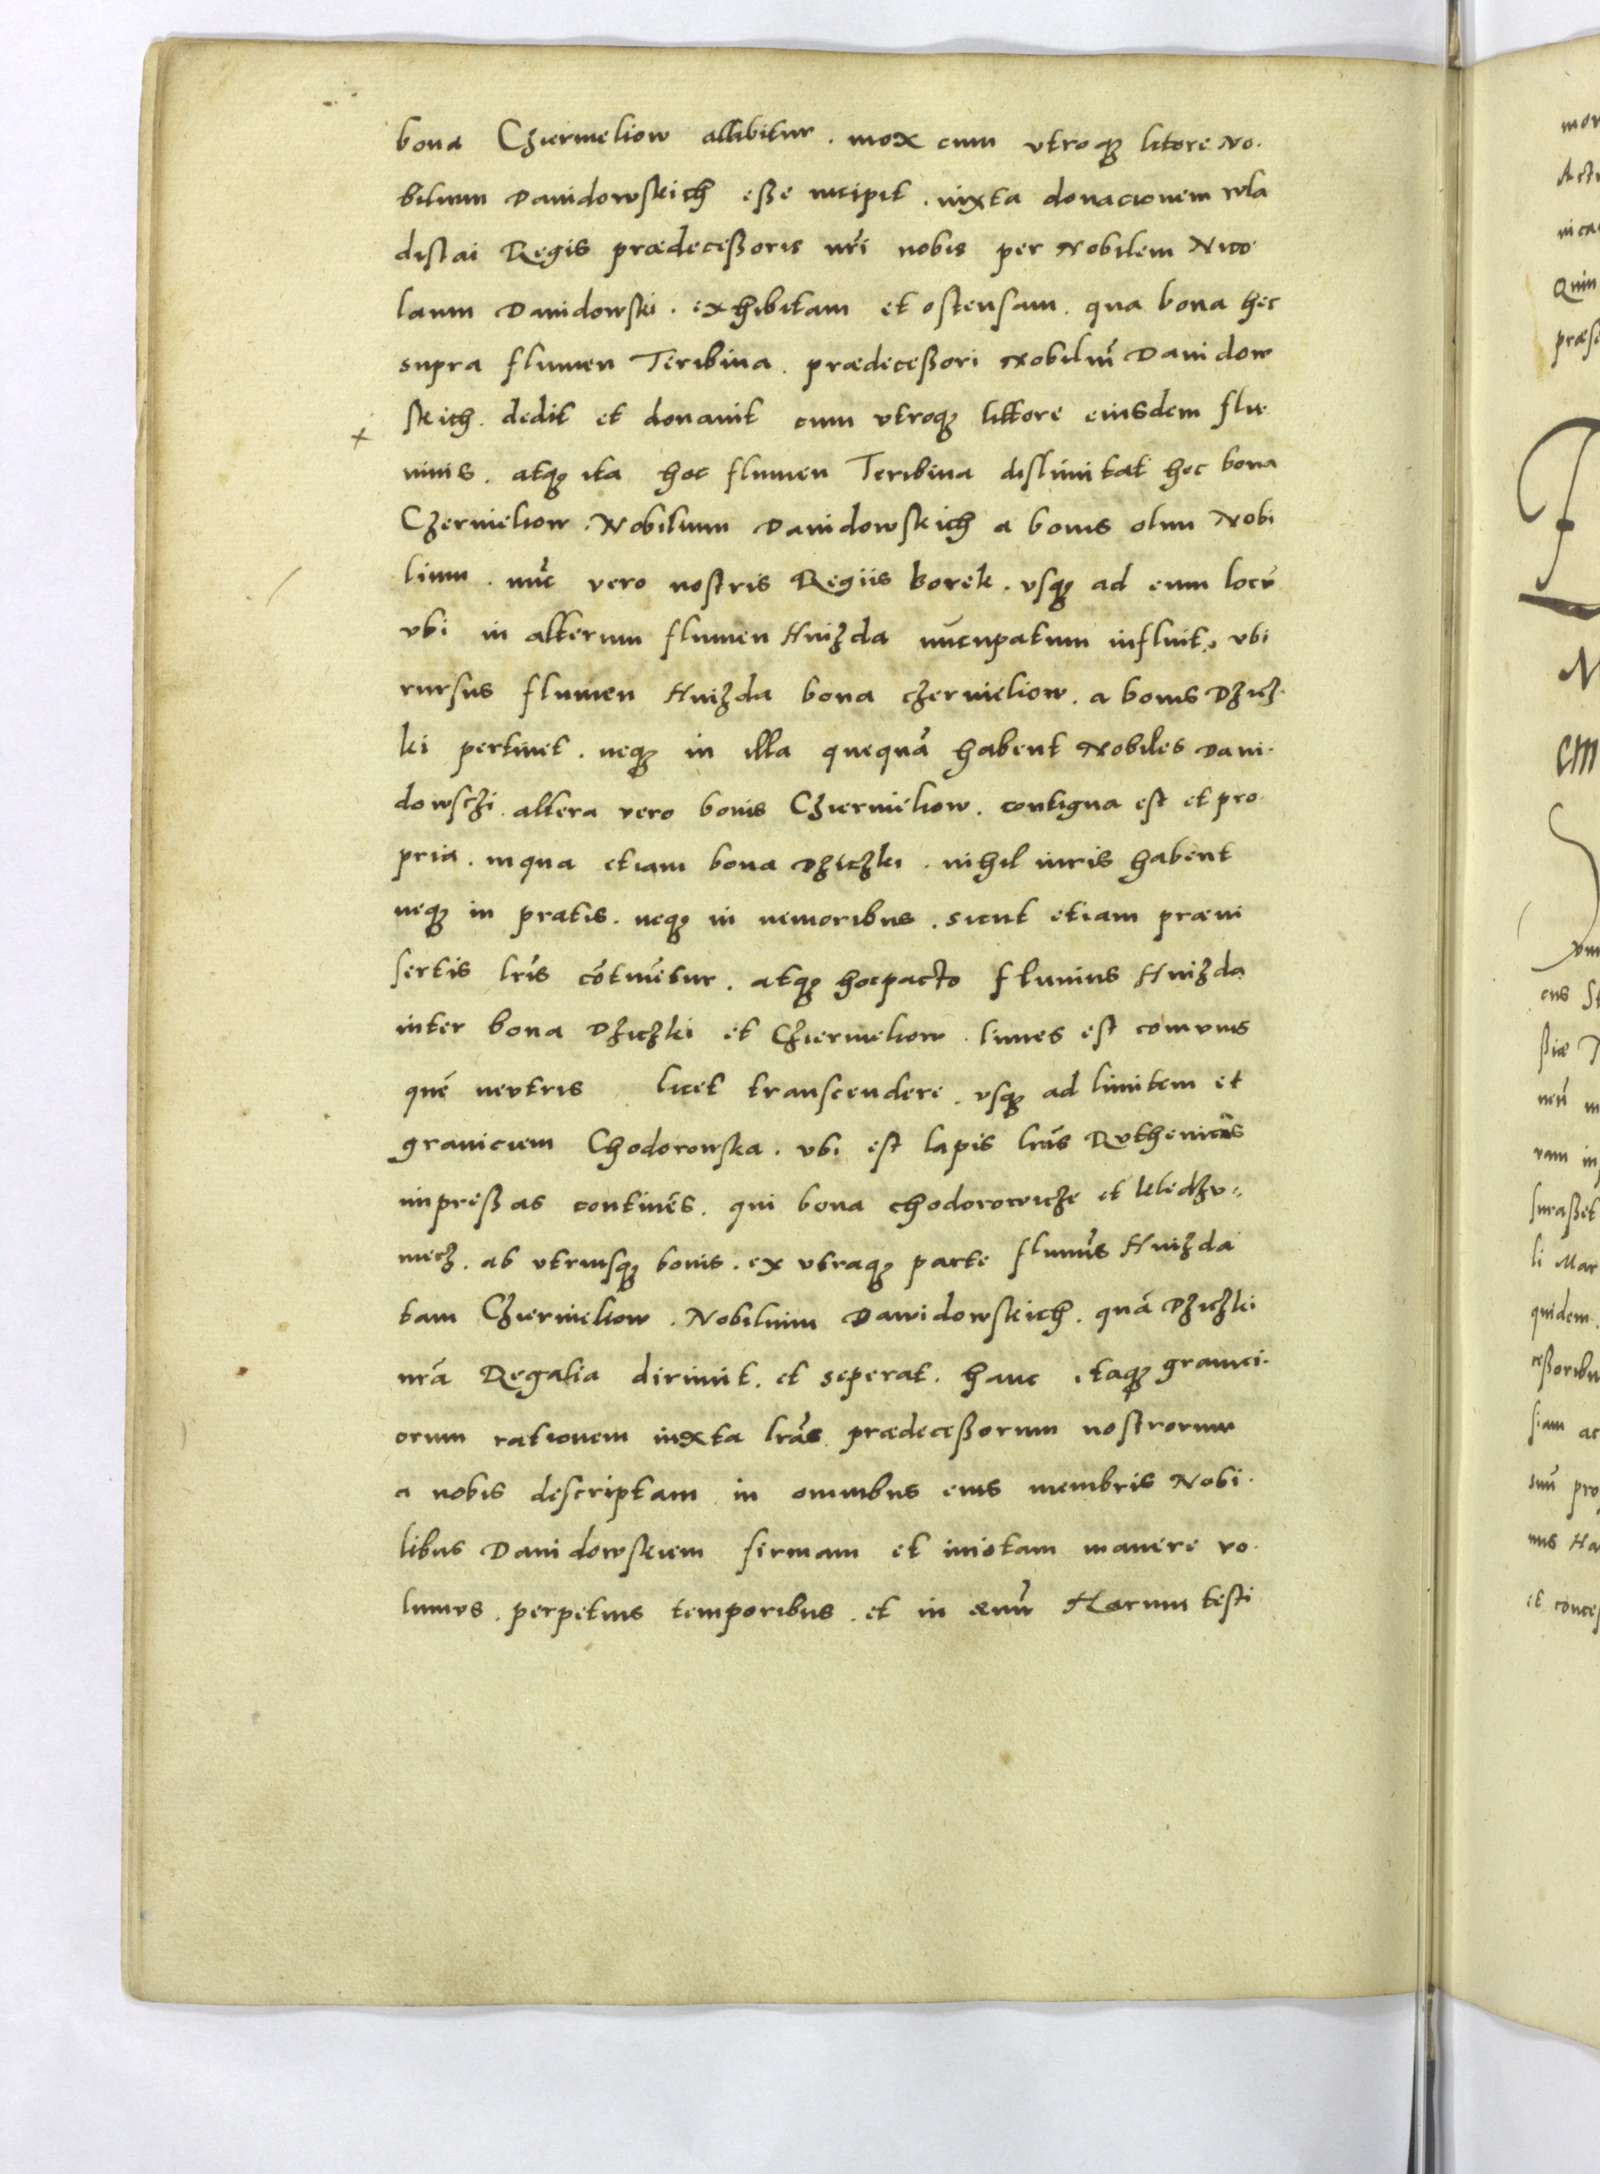 bona Czierneliow allibitur . mox cum vtroq litore No.
bilium Dauidowskich eße incipit . iuxta donacionem wla
dislai Regis prædeceßoris nr̃i nobis per Nobilem Nico
laum Dauidowski . exhibitam et ostensam . qua bona hec
supra flumen Teribina . prædeceßori Nobiliũ Dauidow
skich . dedit et donauit cum vtroq littore eiusdem flu
minis . atq ita hoc flumen Teribina dislimitat hec bona
Czerneliow . Nobilium Dauidowskich a bonis olim Nobi
lium . nũc vero nostris Regiis borek . vsq ad eum locũ
vbi in alterum flumen Hnizda nũcupatum influit . vbi
rursus flumen Hnizda bona czerneliow . a bonis Dzicz.
ki pertinet . neq in illa quequã habent Nobiles Daui.
dowsczi . altera vero bonis Czierneliow . contigua est et pro.
pria . in qua etiam bona Dziczki . nihil iuris habent
neq in pratis . neq in nemoribus . sicut etiam præin
sertis lrĩs cõtinẽtur . atq hocpacto fluuius Hnizda
inter bona Dziczki et Czierneliow . limes est comvnis
quẽ nevtris licet transcendere . vsq ad limitem et
graniciem Chodorowska . vbi est lapis lrãs Rvthenicãs
impreßas continẽs . qui bona chodorowicze et kledzv=
niecz . ab vtrinsq bonis . ex vtraq parte fluuiũs Hnizda
tam Czierneliow . Nobilium Dawidowskich . quã Dziczki
nrã Regalia dirimit . et seperat . hanc itaq granici.
orum rationem iuxta lrãs prædeceßorum nostrorum
a nobis descriptam in omnibus eius membris Nobi.
libus Dauidowskiem firmam et imotam manere vo.
lumvs . perpetuis temporibus . et in æuũ Harum testi